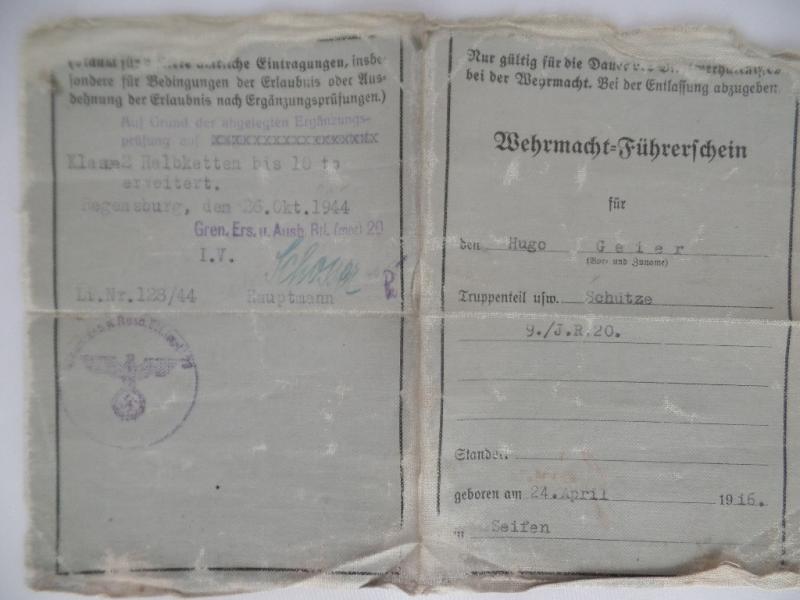 für weitere amtliche Eintragungen, insbe-
sondere für Bedingungen der Erlaubnis oder Aus-
dehnung der Erlaubnis nach Ergänzungsprüfungen.)
Auf Grund der abgelegten Ergänzungs-
prüfung auf xxxxxxxxxxxxxxxxxxx
Halbketten bis 10 to
erweitert.
Regensburg, den 26.Okt.1944
Gren. Ers. u. Ausb. Btl. (mot) 20
I.V.
Li.Nr.128/44 Hauptmann
Nur gültig für die Dauer des
bei der Wehrmacht. Bei der Entlassung abzugeben.
Wehrmacht=Führerschein
für
den Hugo Geier
(Vor= und Zuname)
Truppenteil usw. Schütze
9./J.R.20.
Stander
geboren am 24.April 1916.
in Seifen